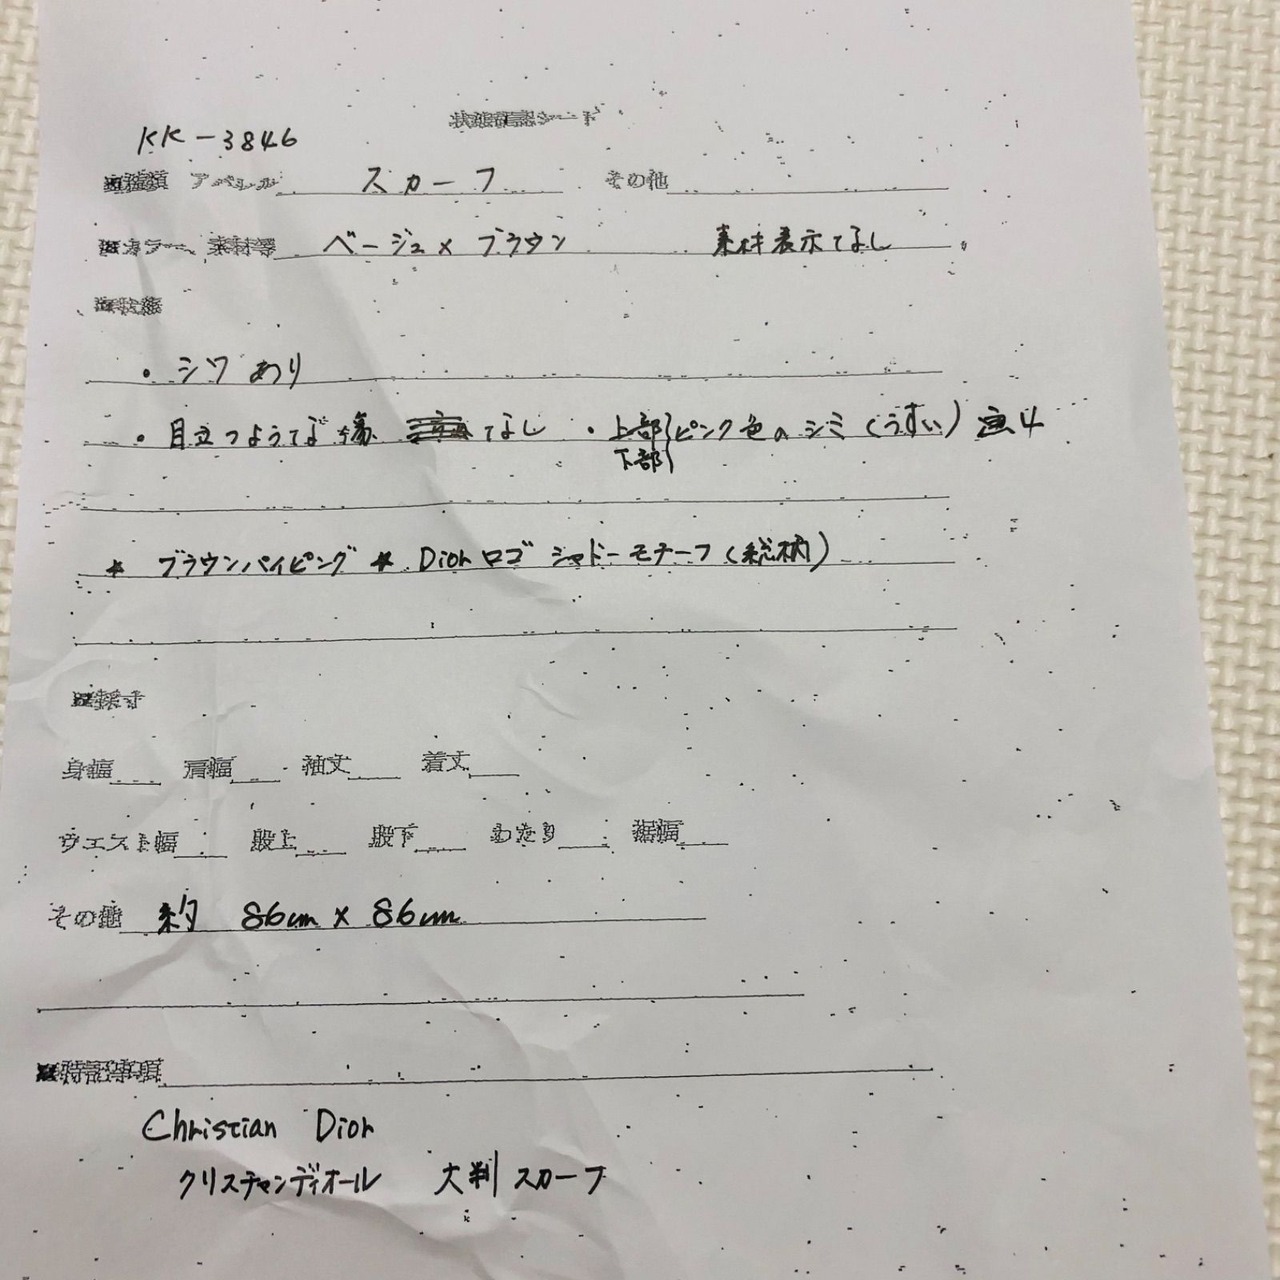 状態確認シート
KK-3846
■種類 アパレル スカーフ その他
■カラー、素材等 ベージュ×ブラウン 素材表示なし
■状態
・シワあり
・目立つような傷 なし ・上部 下部 ピンク色のシミ(うすい) 4
* ブラウンパイピング * Diorロゴ シャドーモチーフ(総柄)
■採寸
身幅 肩幅 袖丈 着丈
ウエスト幅 股上 股下 わたり 裾幅
その他 約 86cm×86cm
■特記事項
Christian Dior
クリスチャンディオール 大判スカーフ